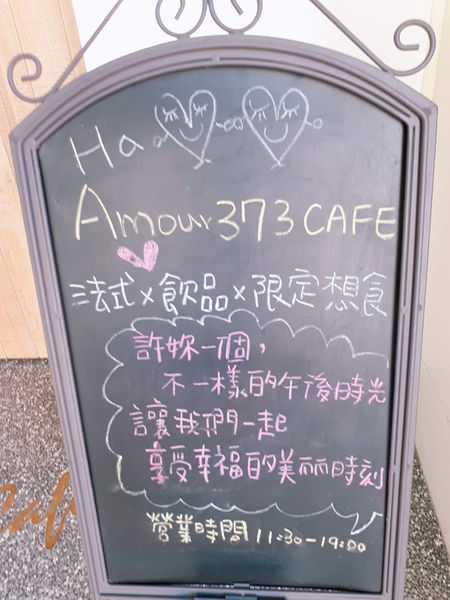 Ha
Amour 373 CAFE
法式×飲品×限定想食
許妳一個，
不一樣的午後時光
讓我們一起
享受幸福的美丽時刻
營業時間 11:30-19:00
Cafe